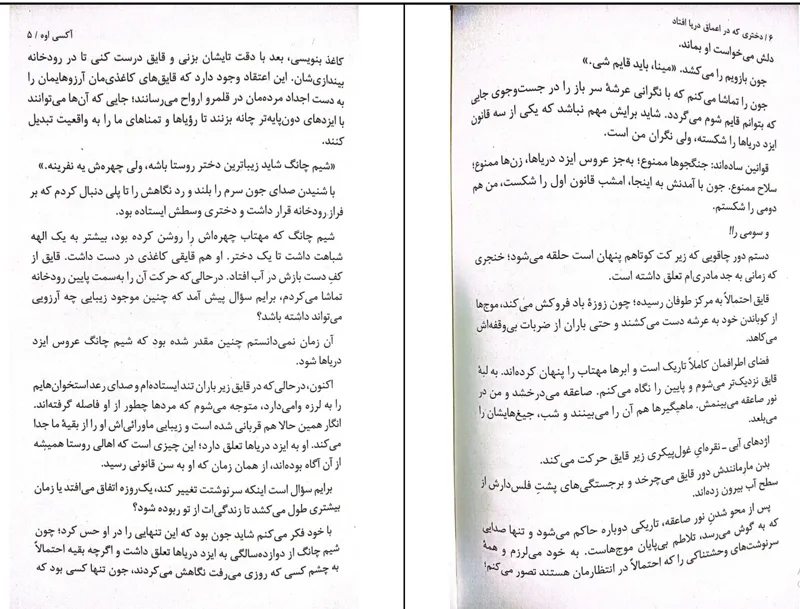 آکسی اوه / ۵
کاغذ بنویسی، بعد با دقت تایشان بزنی و قایق درست کنی تا در رودخانه
بیندازی‌شان. این اعتقاد وجود دارد که قایق‌های کاغذی‌مان آرزوهایمان را
به دست اجداد مرده‌مان در قلمرو ارواح می‌رسانند؛ جایی که آن‌ها می‌توانند
با ایزدهای دون‌پایه‌تر چانه بزنند تا رؤیاها و تمناهای ما را به واقعیت تبدیل
کنند.
«شیم چانگ شاید زیباترین دختر روستا باشه، ولی چهره‌ش یه نفرینه.»
با شنیدن صدای جون سرم را بلند و رد نگاهش را تا پلی دنبال کردم که بر
فراز رودخانه قرار داشت و دختری وسطش ایستاده بود.
شیم چانگ که مهتاب چهره‌اش را روشن کرده بود، بیشتر به یک الهه
شباهت داشت تا یک دختر. او هم قایقی کاغذی در دست داشت. قایق از
کفِ دست بازش در آب افتاد. درحالی‌که حرکت آن را به‌سمت پایین رودخانه
تماشا می‌کردم، برایم سؤال پیش آمد که چنین موجود زیبایی چه آرزویی
می‌تواند داشته باشد؟
آن زمان نمی‌دانستم چنین مقدر شده بود که شیم چانگ عروس ایزد
دریاها شود.
اکنون، درحالی‌که در قایق زیر باران تند ایستاده‌ام و صدای رعد استخوان‌هایم
را به لرزه وامی‌دارد، متوجه می‌شوم که مردها چطور از او فاصله گرفته‌اند.
انگار همین حالا هم قربانی شده است و زیبایی ماورائی‌اش او را از بقیهٔ ما جدا
می‌کند. او به ایزد دریاها تعلق دارد؛ این چیزی است که اهالی روستا همیشه
از آن آگاه بوده‌اند، از همان زمان که او به سن قانونی رسید.
برایم سؤال است اینکه سرنوشتت تغییر کند، یک‌روزه اتفاق می‌افتد یا زمان
بیشتری طول می‌کشد تا زندگی‌ات از تو ربوده شود؟
با خود فکر می‌کنم شاید جون بود که این تنهایی را در او حس کرد؛ چون
شیم چانگ از دوازده‌سالگی به ایزد دریاها تعلق داشت و اگرچه بقیه احتمالاً
به چشم کسی که روزی می‌رفت نگاهش می‌کردند، جون تنها کسی بود که
۶ / دختری که در اعماق دریا افتاد
دلش می‌خواست او بماند.
جون بازویم را می‌کشد. «مینا، باید قایم شی.»
جون را تماشا می‌کنم که با نگرانی عرشهٔ سر باز را در جست‌وجوی جایی
که بتوانم قایم شوم می‌گردد. شاید برایش مهم نباشد که یکی از سه قانون
ایزد دریاها را شکسته، ولی نگران من است.
قوانین ساده‌اند: جنگجوها ممنوع؛ به‌جز عروس ایزد دریاها، زن‌ها ممنوع؛
سلاح ممنوع. جون با آمدنش به اینجا، امشب قانون اول را شکست، من هم
دومی را شکستم.
و سومی را!
دستم دور چاقویی که زیر کت کوتاهم پنهان است حلقه می‌شود؛ خنجری
که زمانی به جد مادری‌ام تعلق داشته است.
قایق احتمالاً به مرکز طوفان رسیده؛ چون زوزهٔ باد فروکش می‌کند، موج‌ها
از کوباندن خود به عرشه دست می‌کشند و حتی باران از ضربات بی‌وقفه‌اش
می‌کاهد.
فضای اطرافمان کاملاً تاریک است و ابرها مهتاب را پنهان کرده‌اند. به لبهٔ
قایق نزدیک‌تر می‌شوم و پایین را نگاه می‌کنم. صاعقه می‌درخشد و من در
نور صاعقه می‌بینمش. ماهیگیرها هم آن را می‌بینند و شب، جیغ‌هایشان را
می‌بلعد.
اژدهای آبی ـ نقره‌ایِ غول‌پیکری زیر قایق حرکت می‌کند.
بدن مارمانندش دور قایق می‌چرخد و برجستگی‌های پشتِ فلس‌دارش از
سطح آب بیرون زده‌اند.
پس از محو شدنِ نور صاعقه، تاریکی دوباره حاکم می‌شود و تنها صدایی
که به گوش می‌رسد، تلاطم بی‌پایان موج‌هاست. به خود می‌لرزم و همهٔ
سرنوشت‌های وحشتناکی را که احتمالاً در انتظارمان هستند تصور می‌کنم؛